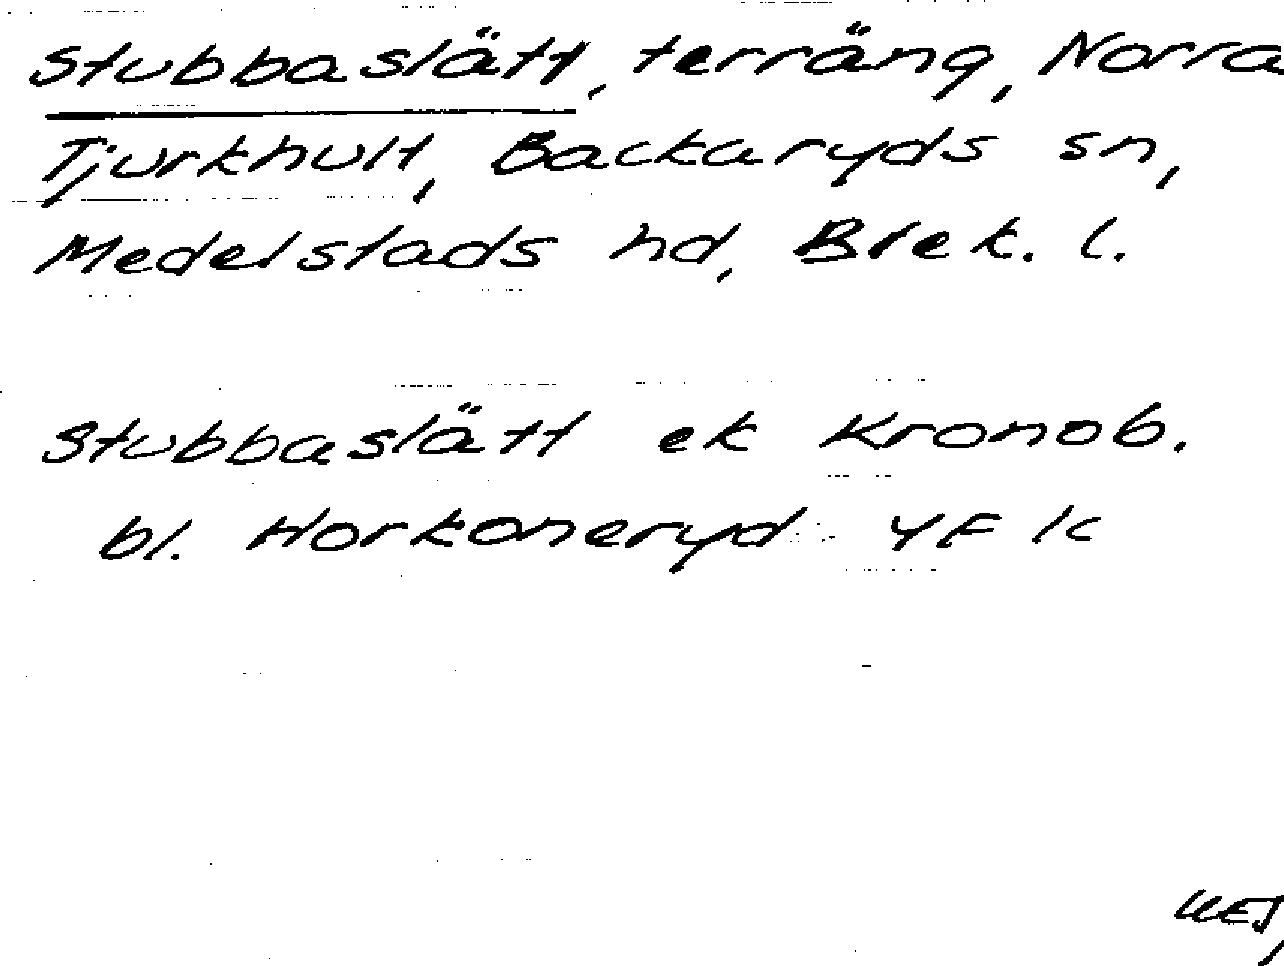 Stubbaslätt, terräng, Norra
Tjurkhult, Backaryds sn,
Medelstads hd, Blek. l.
Stubbaslätt ek Kronob.
bl. Horkoneryd YF 1c